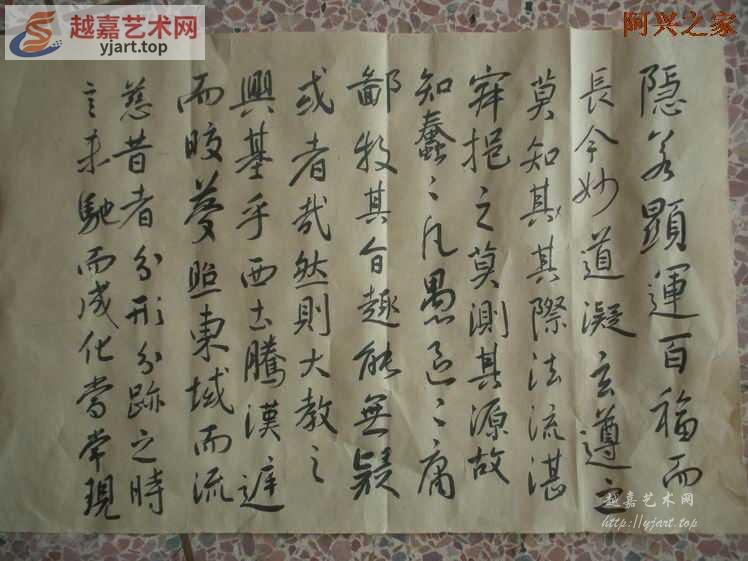 越嘉艺术网
yjart.top
阿兴之家
隱若顯運百福而
長今妙道凝玄遵之
莫知其其際法流湛
寂挹之莫測其源故
知蠢々凡愚區々庸
鄙投其旨趣能無疑
或者哉然則大教之
興基乎西土騰漢庭
而皎夢照東域而流
慈昔者分形分跡之時
言未馳而成化當常現
越嘉艺术网
http://yjart.top